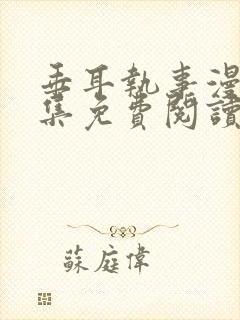 垂耳執事漫
集免費閱讀
蘇庭偉